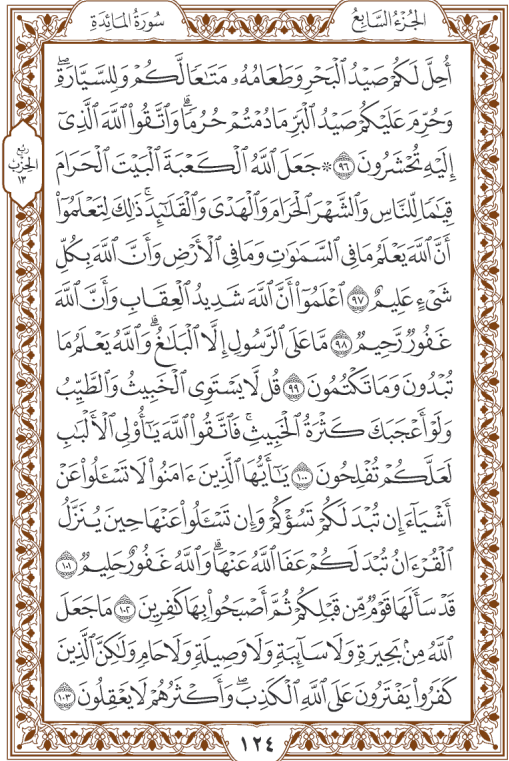 الجُزْءُ السَّابِعُ
سُورَةُ المَائِدَةِ
أُحِلَّ لَكُمْ صَيْدُ ٱلْبَحْرِ وَطَعَامُهُۥ مَتَٰعًا لَّكُمْ وَلِلسَّيَّارَةِۖ
وَحُرِّمَ عَلَيْكُمْ صَيْدُ ٱلْبَرِّ مَا دُمْتُمْ حُرُمًاۗ وَٱتَّقُوا۟ ٱللَّهَ ٱلَّذِىٓ
إِلَيْهِ تُحْشَرُونَ ٩٦ ۞ جَعَلَ ٱللَّهُ ٱلْكَعْبَةَ ٱلْبَيْتَ ٱلْحَرَامَ
رُبع
الحِزْب
١٣
قِيَٰمًا لِّلنَّاسِ وَٱلشَّهْرَ ٱلْحَرَامَ وَٱلْهَدْىَ وَٱلْقَلَٰٓئِدَۚ ذَٰلِكَ لِتَعْلَمُوٓا۟
أَنَّ ٱللَّهَ يَعْلَمُ مَا فِى ٱلسَّمَٰوَٰتِ وَمَا فِى ٱلْأَرْضِ وَأَنَّ ٱللَّهَ بِكُلِّ
شَىْءٍ عَلِيمٌ ٩٧ ٱعْلَمُوٓا۟ أَنَّ ٱللَّهَ شَدِيدُ ٱلْعِقَابِ وَأَنَّ ٱللَّهَ
غَفُورٌ رَّحِيمٌ ٩٨ مَّا عَلَى ٱلرَّسُولِ إِلَّا ٱلْبَلَٰغُۗ وَٱللَّهُ يَعْلَمُ مَا
تُبْدُونَ وَمَا تَكْتُمُونَ ٩٩ قُل لَّا يَسْتَوِى ٱلْخَبِيثُ وَٱلطَّيِّبُ
وَلَوْ أَعْجَبَكَ كَثْرَةُ ٱلْخَبِيثِۚ فَٱتَّقُوا۟ ٱللَّهَ يَٰٓأُو۟لِى ٱلْأَلْبَٰبِ
لَعَلَّكُمْ تُفْلِحُونَ ١٠٠ يَٰٓأَيُّهَا ٱلَّذِينَ ءَامَنُوا۟ لَا تَسْـَٔلُوا۟ عَنْ
أَشْيَآءَ إِن تُبْدَ لَكُمْ تَسُؤْكُمْ وَإِن تَسْـَٔلُوا۟ عَنْهَا حِينَ يُنَزَّلُ
ٱلْقُرْءَانُ تُبْدَ لَكُمْ عَفَا ٱللَّهُ عَنْهَاۗ وَٱللَّهُ غَفُورٌ حَلِيمٌ ١٠١
قَدْ سَأَلَهَا قَوْمٌ مِّن قَبْلِكُمْ ثُمَّ أَصْبَحُوا۟ بِهَا كَٰفِرِينَ ١٠٢ مَا جَعَلَ
ٱللَّهُ مِنۢ بَحِيرَةٍ وَلَا سَآئِبَةٍ وَلَا وَصِيلَةٍ وَلَا حَامٍ وَلَٰكِنَّ ٱلَّذِينَ
كَفَرُوا۟ يَفْتَرُونَ عَلَى ٱللَّهِ ٱلْكَذِبَۖ وَأَكْثَرُهُمْ لَا يَعْقِلُونَ ١٠٣
١٢٤